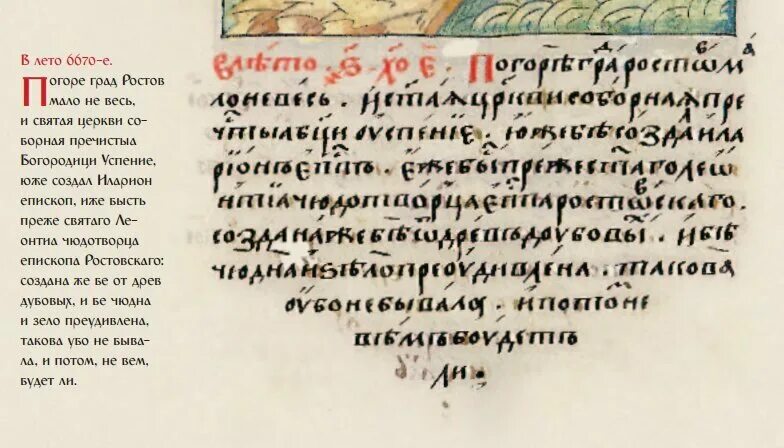 В лето 6670-е.
Погоре град Ростов
мало не весь,
и святая церкви со-
ворная пречистыа
Богородици Успение,
юже создал Иларион
епископ, иже высть
преже святаго Ле-
онтиа чюдотворца
епископа Ростовскаго:
создана же ве от древ
дувовых, и ве чюдна
и зело преудивлена,
такова уво не выва-
ла, и потом, не вем,
вудет ли.
В лѣто ҂ѕ҃ х҃о е҃. Погорѣ гра́ ростѡ м̾а
ло не весь. и ст҃аѧ цр҃кви соборнаѧ пре
чт҃ыа бц҃и оуспение. юже бѣ созда ила
рїонъ еп҃пъ. еже бы̑ преже ст҃аго леѡ
нтїа чюдотворца еп҃па ростѡ́скаго.
создана же бѣ ѿ древъ доубовы́. и бѣ
чюдна и ѕѣло преоудивлена. такова
оубо не бывало. и пото́ не
вѣмъ боудетъ
ли.